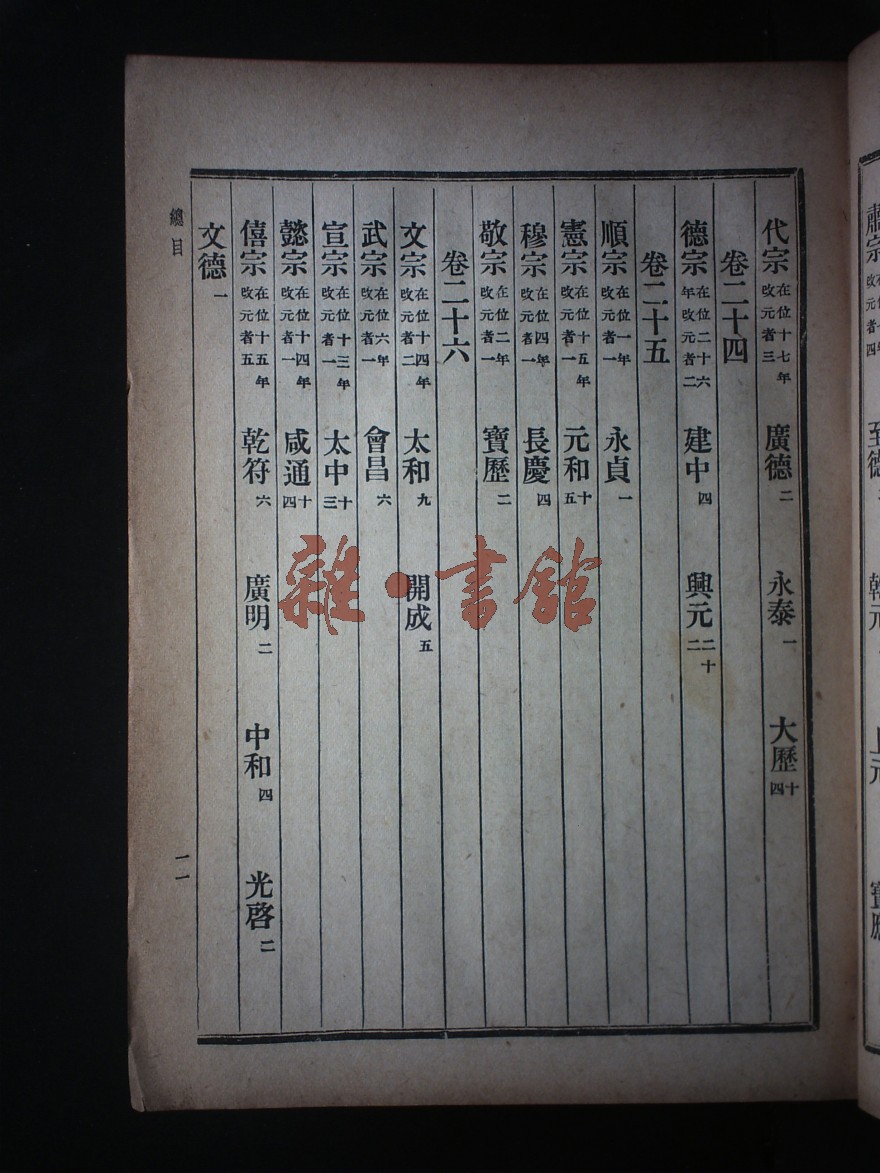 代宗在位十七年改元者三　廣德二　永泰一　大歷十四
卷二十四
德宗在位二十六年改元者二　建中四　興元二十二
卷二十五
順宗在位一年改元者一　永貞一
憲宗在位十五年改元者一　元和十五
穆宗在位四年改元者一　長慶四
敬宗在位二年改元者一　寶歷二
卷二十六
文宗在位十四年改元者二　太和九　開成五
武宗在位六年改元者一　會昌六
宣宗在位十三年改元者一　太中十三
懿宗在位十四年改元者一　咸通十四
僖宗在位十五年改元者五　乾符六　廣明二　中和四　光啓二
文德一
總目
一一
雜·書館